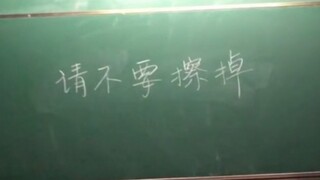 请不要擦掉